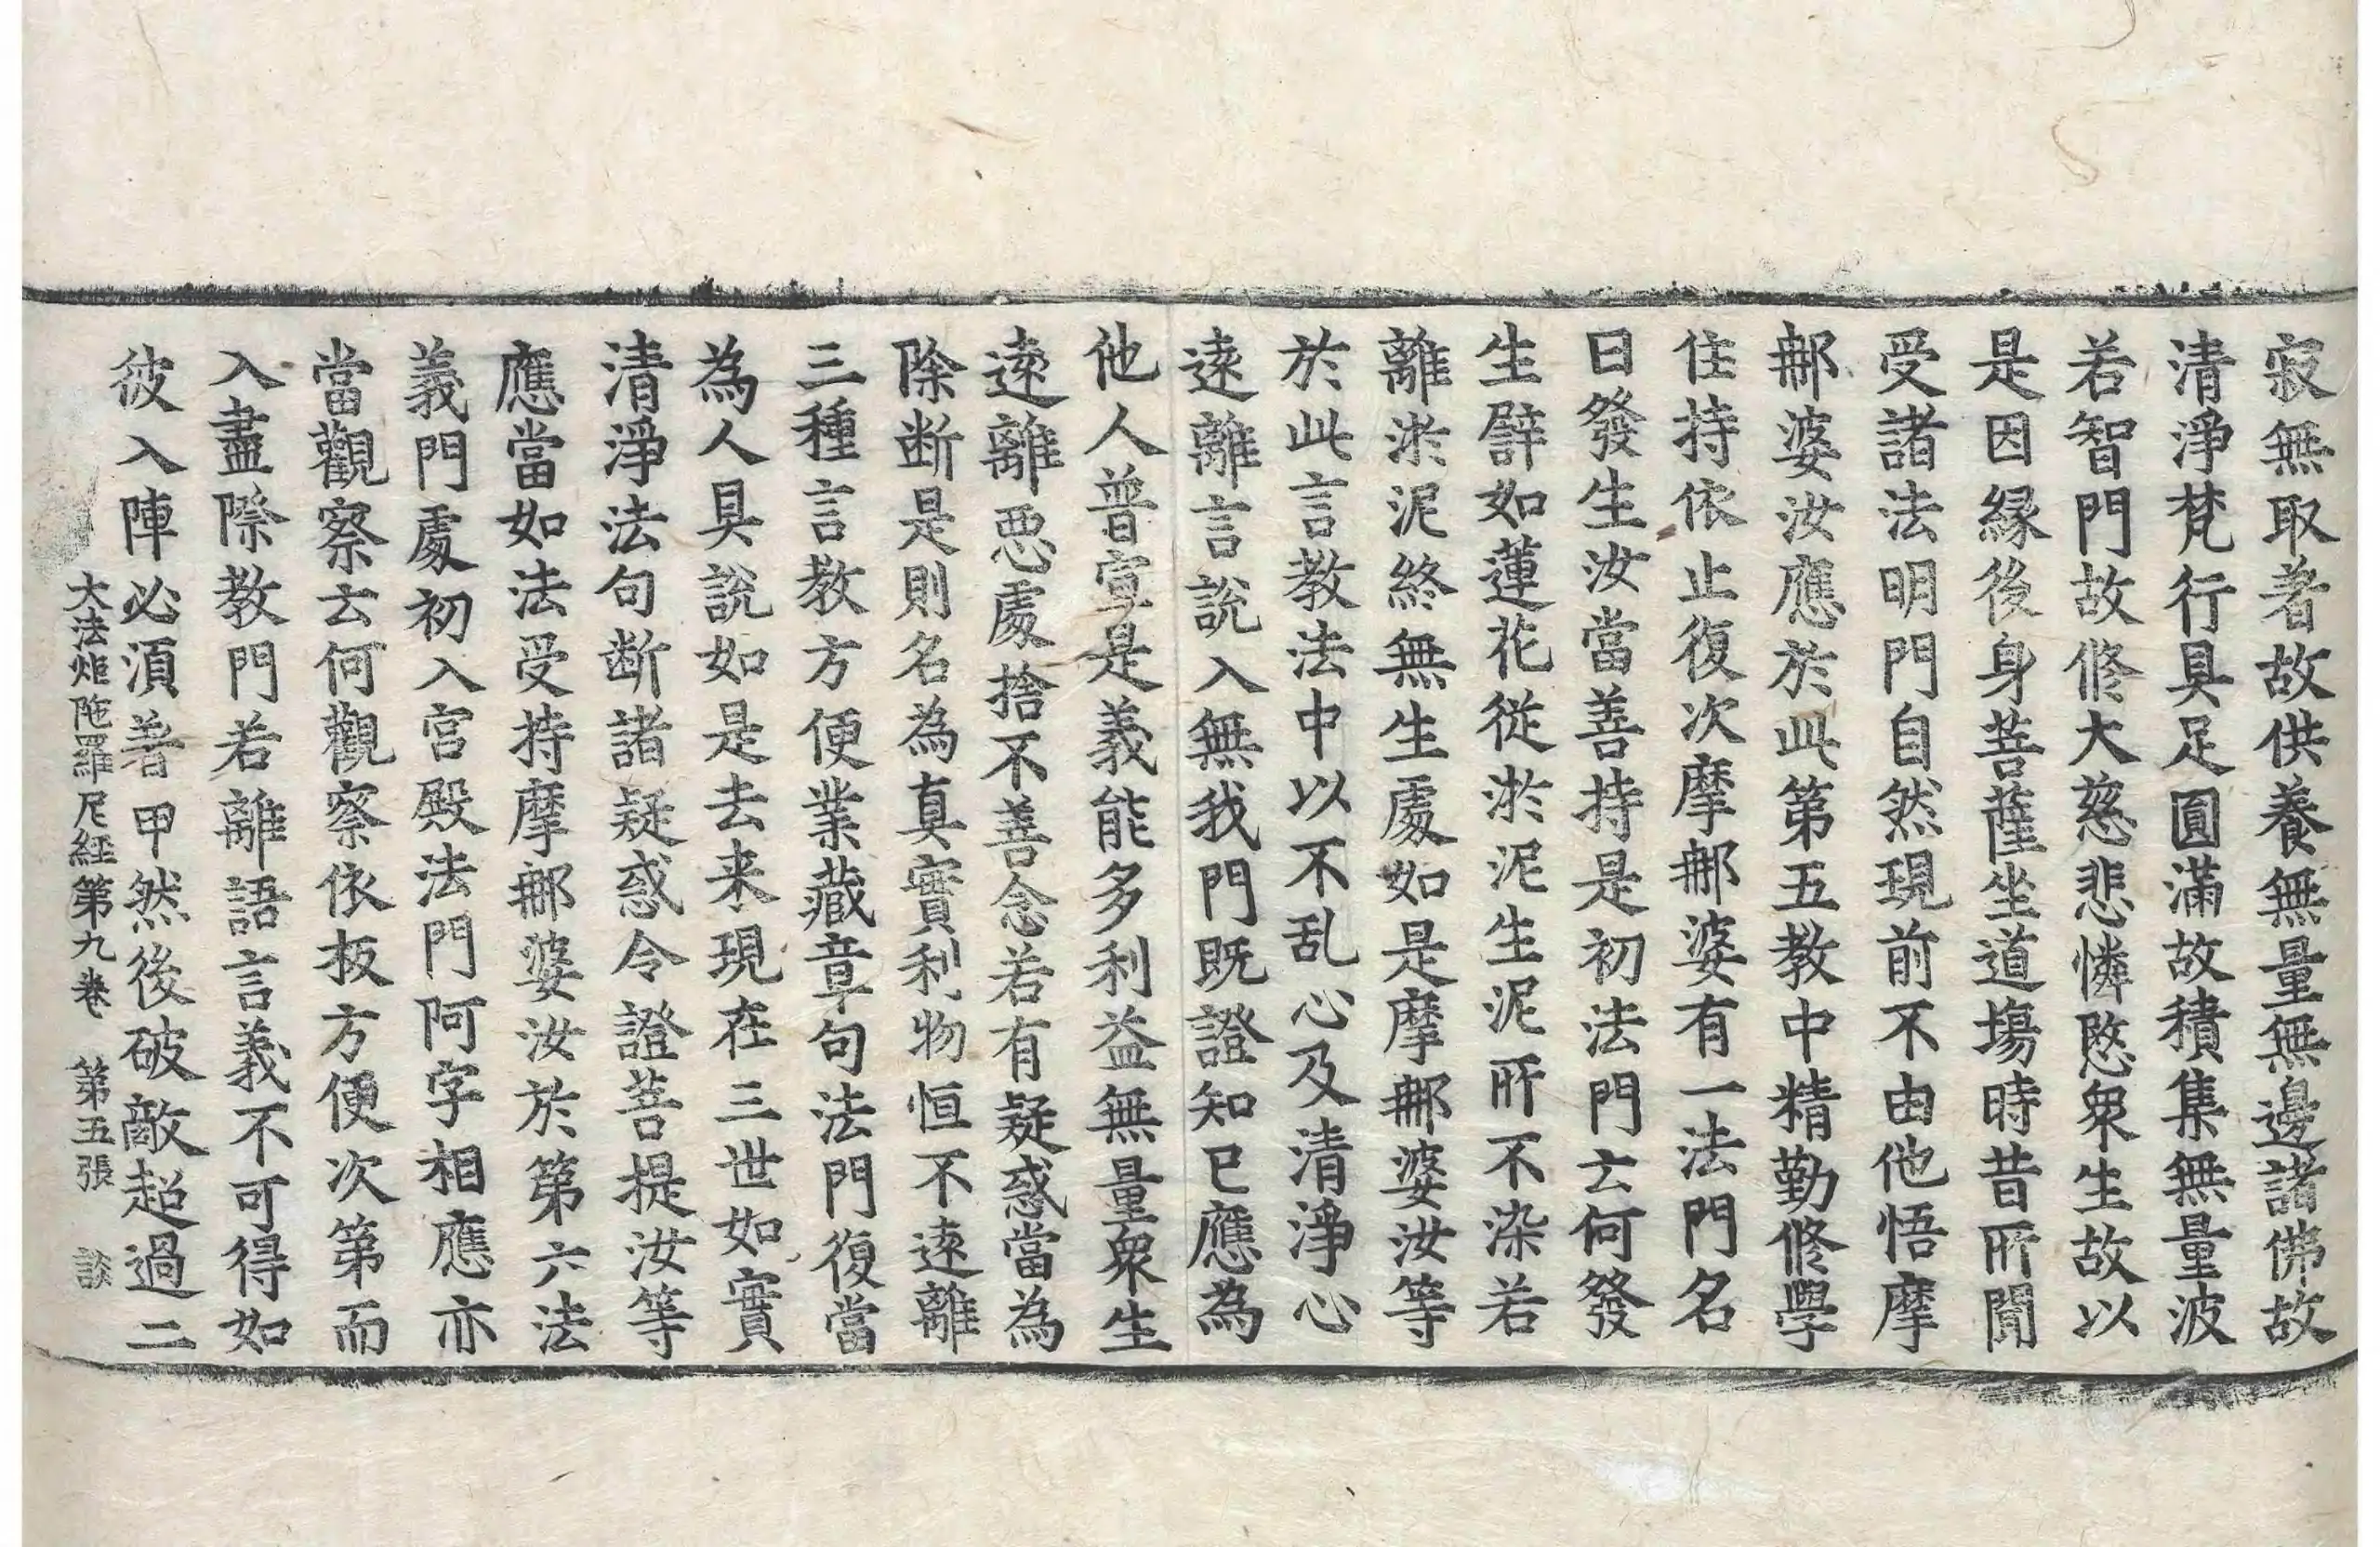 寂無取著故供養無量無邊諸佛故
清淨梵行具足圓滿故積集無量波
若智門故修大慈悲憐愍衆生故以
是因緣後身菩薩坐道塲時昔所聞
受諸法明門自然現前不由他悟摩
那婆汝應於此第五教中精勤修學
住持依止復次摩那婆有一法門名
曰發生汝當善持是初法門云何發
生譬如蓮花從淤泥生泥所不染若
離淤泥終無生處如是摩那婆汝等
於此言教法中以不乱心及清淨心
遠離言說入無我門既證知已應為
他人普宣是義能多利益無量衆生
遠離惡處捨不善念若有疑惑當為
除断是則名為真實利物恒不遠離
三種言教方便業藏章句法門復當
為人具說如是去来現在三世如實
清淨法句断諸疑惑令證菩提汝等
應當如法受持摩那婆汝於第六法
義門處初入宮殿法門阿字相應亦
當觀察云何觀察依板方便次第而
入盡際教門若離語言義不可得如
彼入陣必湏著甲然後破敵超過二
大法炬陁羅尼経第九卷 第五張 談